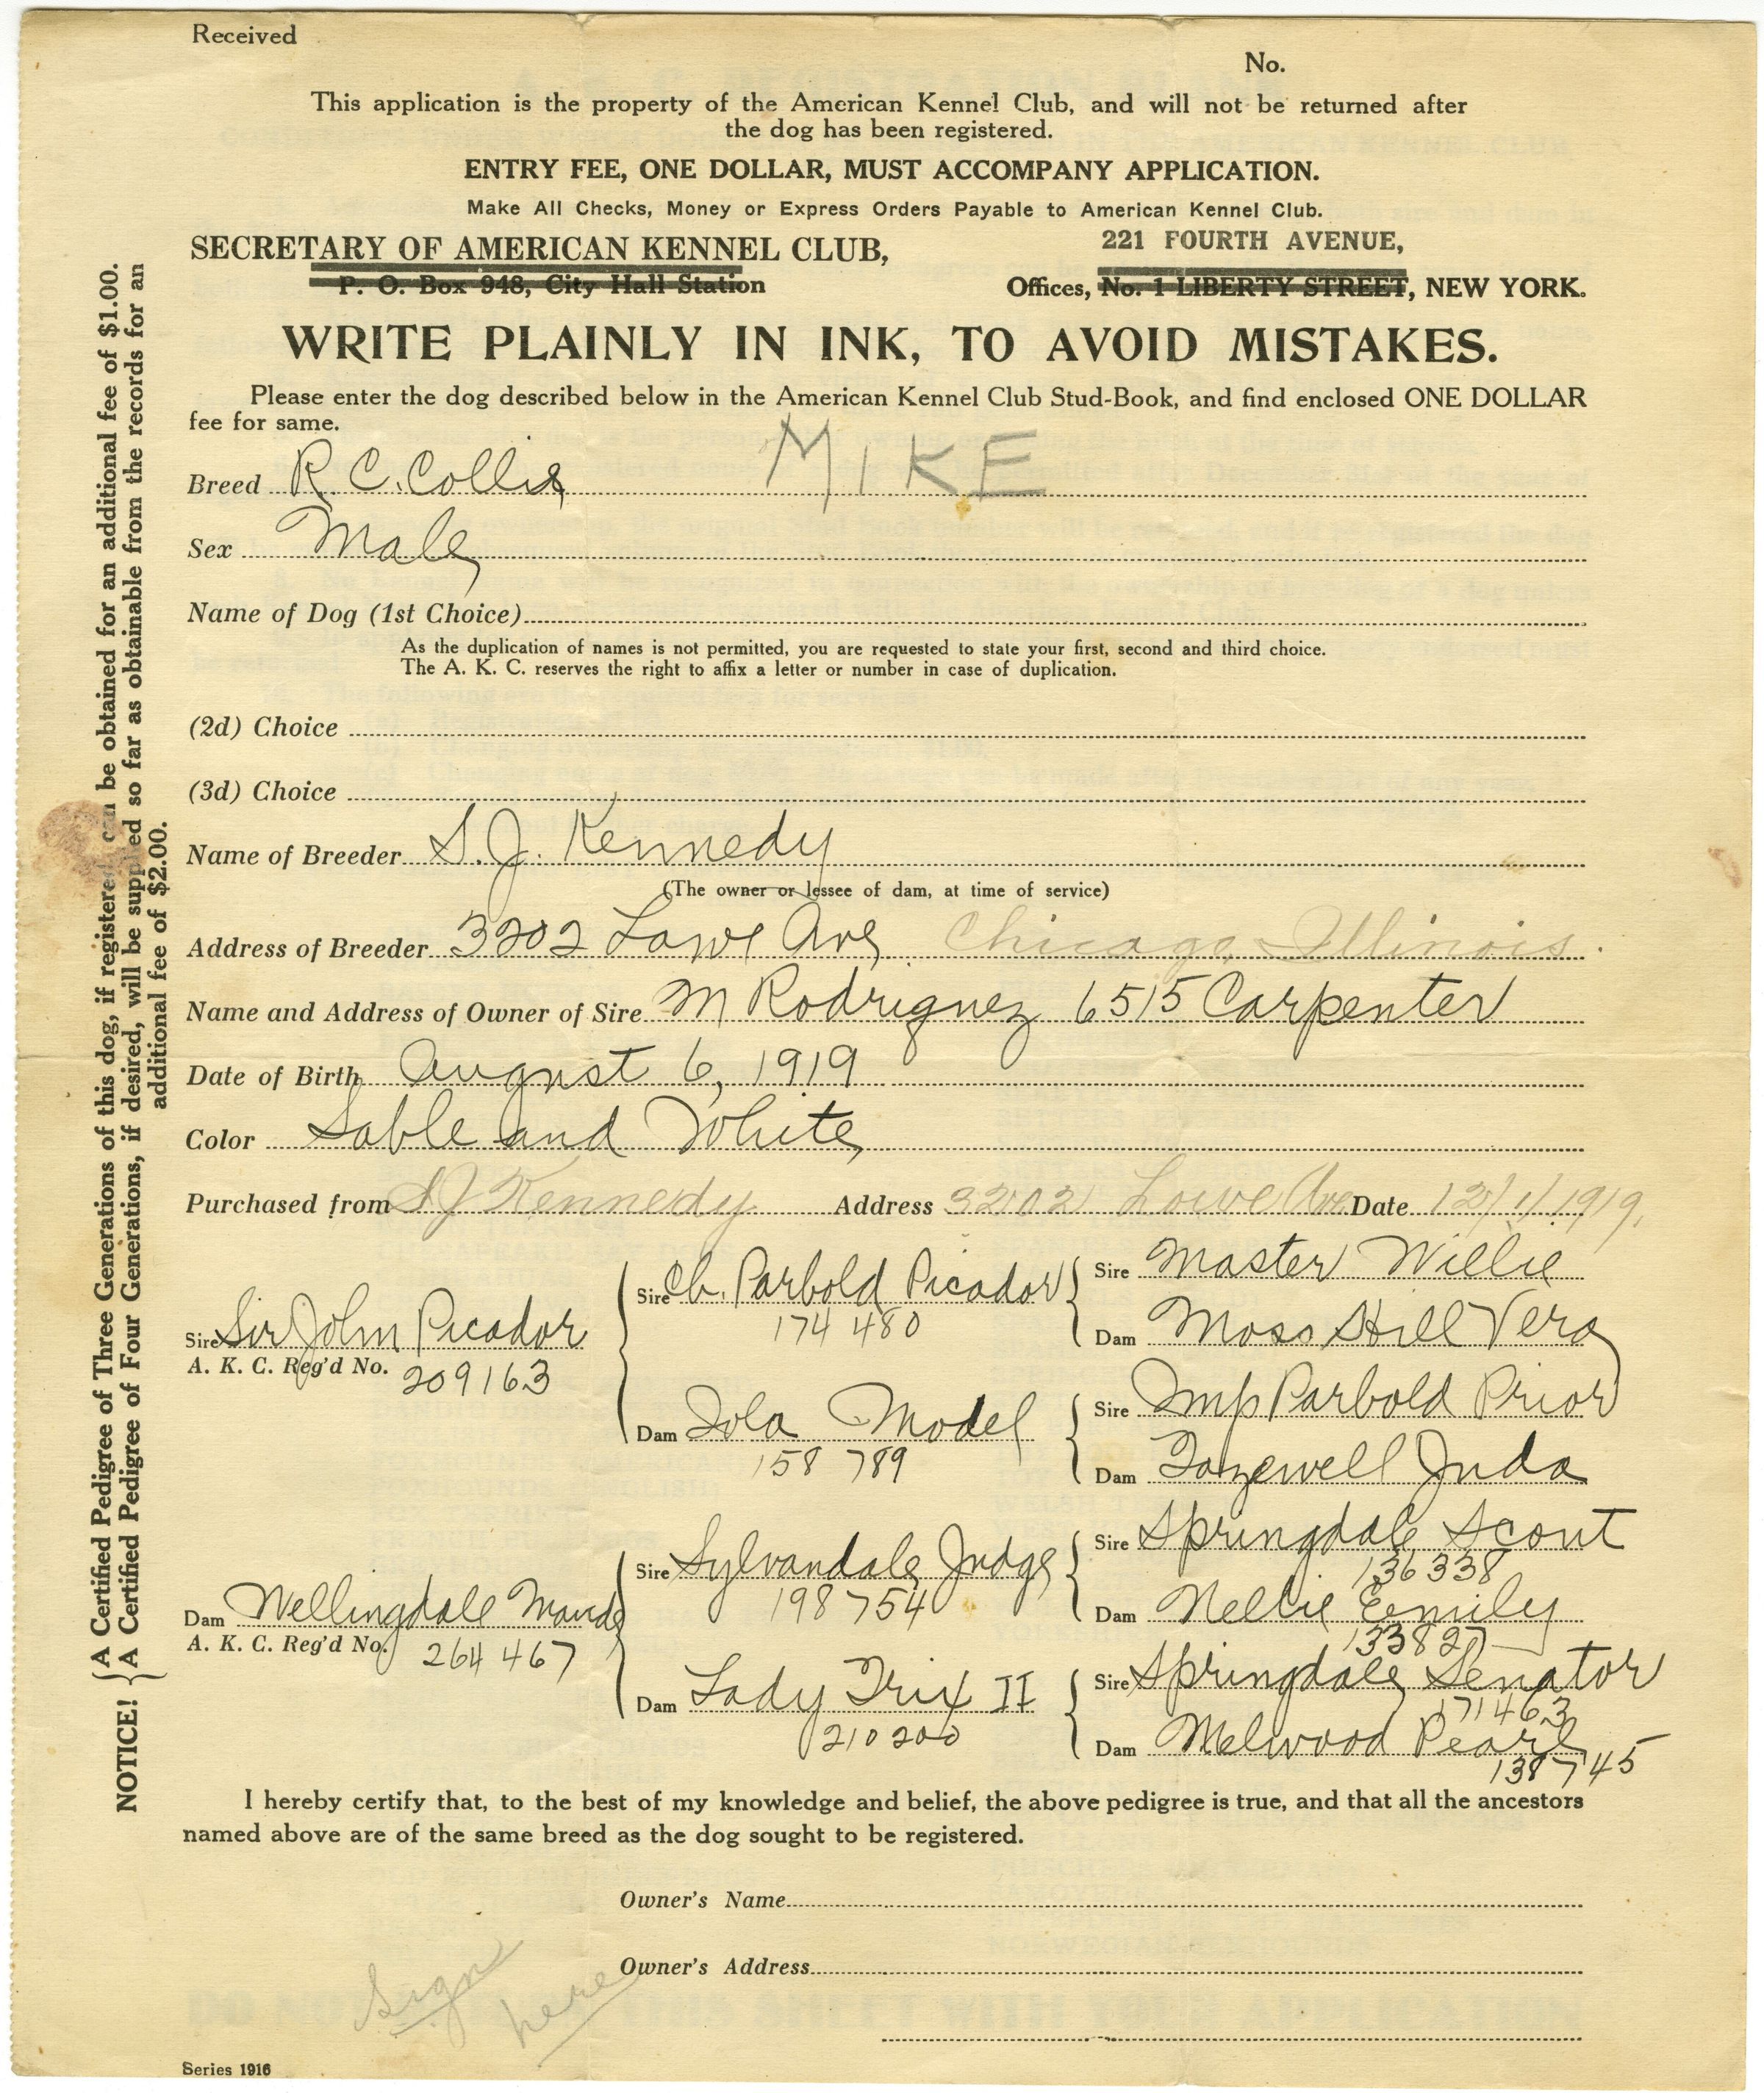 Received
No.
This application is the property of the American Kennel Club, and will not be returned after
the dog has been registered.
ENTRY FEE, ONE DOLLAR, MUST ACCOMPANY APPLICATION.
Make All Checks, Money or Express Orders Payable to American Kennel Club.
SECRETARY OF AMERICAN KENNEL CLUB,
221 FOURTH AVENUE,
P. O. Box 948, City Hall Station
Offices, No. 1 LIBERTY STREET, NEW YORK.
WRITE PLAINLY IN INK, TO AVOID MISTAKES.
Please enter the dog described below in the American Kennel Club Stud-Book, and find enclosed ONE DOLLAR
fee for same.
MIKE
Breed R. C. Collie
Sex Male
Name of Dog (1st Choice)
As the duplication of names is not permitted, you are requested to state your first, second and third choice.
The A. K. C. reserves the right to affix a letter or number in case of duplication.
(2d) Choice
(3d) Choice
Name of Breeder S. J. Kennedy
(The owner or lessee of dam, at time of service)
Address of Breeder 3202 Lowe Ave Chicago, Illinois.
Name and Address of Owner of Sire M Rodriguez 6515 Carpenter
Date of Birth August 6, 1919
Color Sable and White
Purchased from SJ Kennedy Address 3202 Lowe Ave Date 12/1/1919.
Sire Sir John Picador
A. K. C. Reg'd No. 209163
Sire Ch. Parbold Picador
174 480
Sire Master Willie
Dam Moss Hill Vera
Dam Iola Model
158 789
Sire Imp Parbold Prior
Dam Tazewell Juda
Dam Wellingdale Maude
A. K. C. Reg'd No. 264 467
Sire Sylvandale Judge
198 754
Sire Springdale Scout
136 338
Dam Nellie Eemily
133827
Dam Lady Trix II
210 200
Sire Springdale Senator
171463
Dam Melwood Pearl
138745
I hereby certify that, to the best of my knowledge and belief, the above pedigree is true, and that all the ancestors
named above are of the same breed as the dog sought to be registered.
Owner's Name
Owner's Address
Sign
here
Series 1916
NOTICE!
A Certified Pedigree of Three Generations of this dog, if registered, can be obtained for an additional fee of $1.00.
A Certified Pedigree of Four Generations, if desired, will be supplied so far as obtainable from the records for an
additional fee of $2.00.